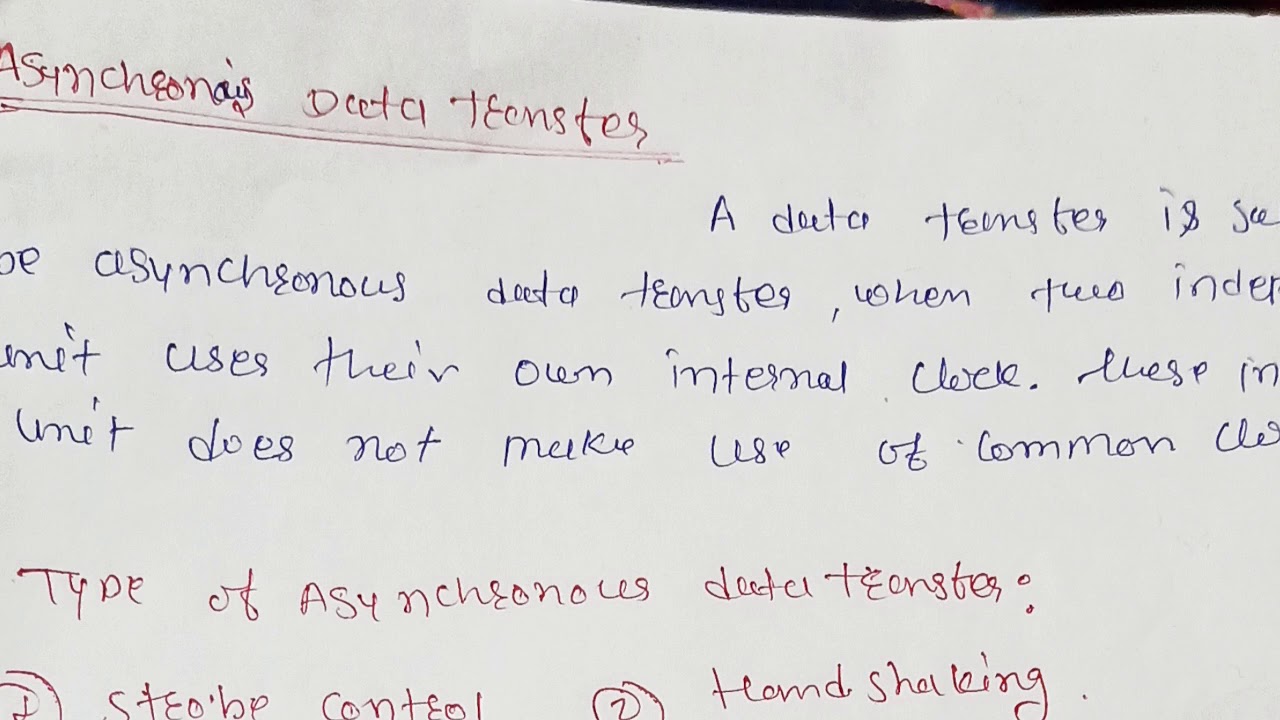 Asynchronous Data transfer
A data transfer is sa
be asynchronous data transfer, when two indep
unit uses their own internal clock. these in
unit does not make use of common clo
Type of Asynchronous data transfer:
① strobe control ② Handshaking.